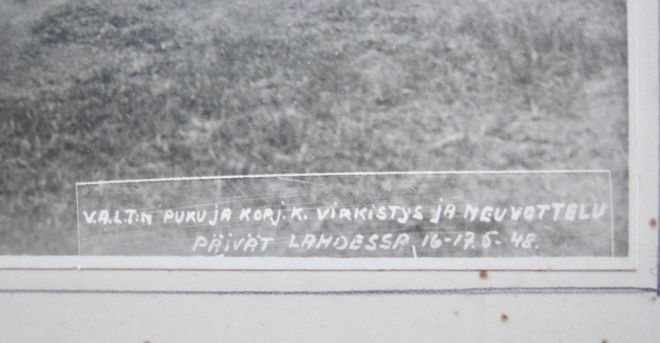 V.A.L.T:N PUKU JA KORJ.K. VIRKISTYS JA NEUVOTTELU
PÄIVÄT LAHDESSA, 16-17.6-48.